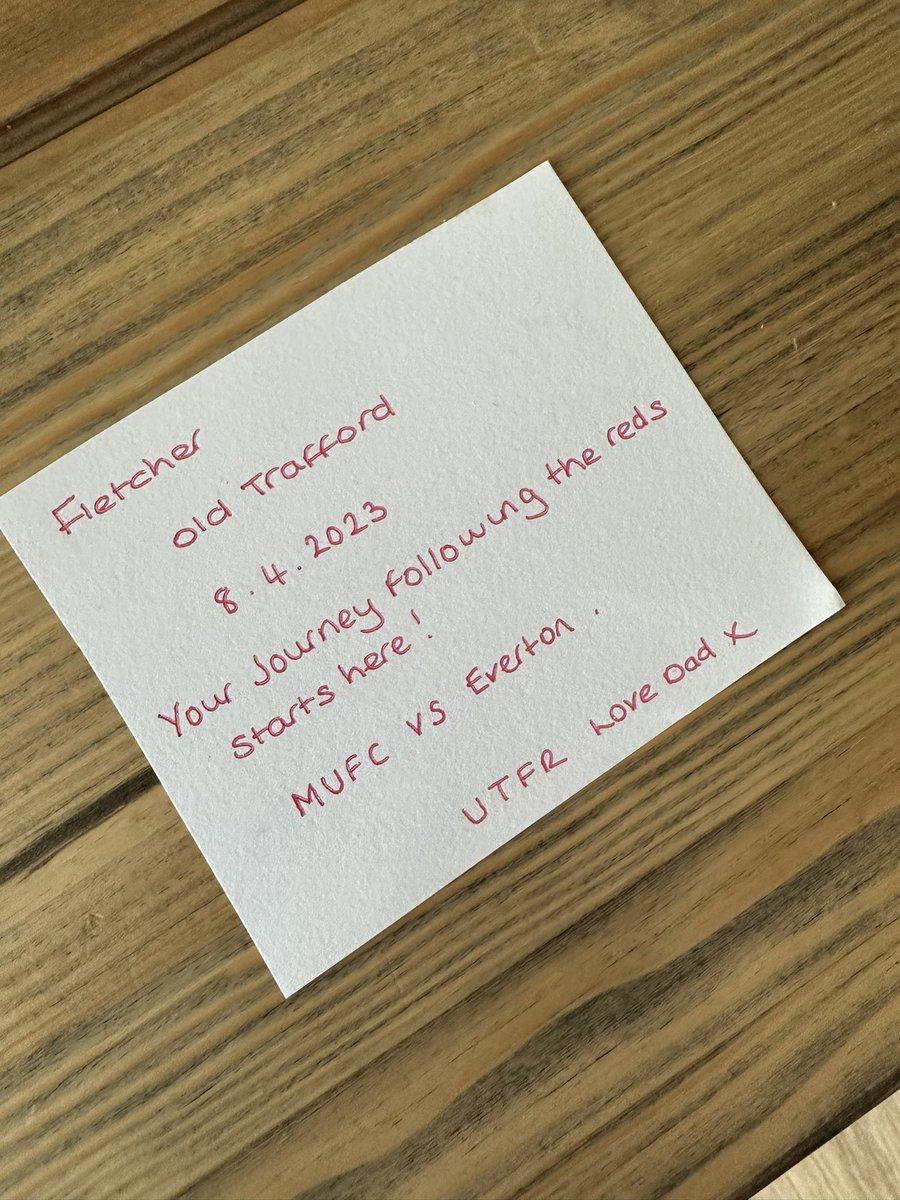 Fletcher
Old Trafford
8.4.2023
Your Journey following the reds
starts here!
MUFC vs Everton.
UTFR Love Dad X